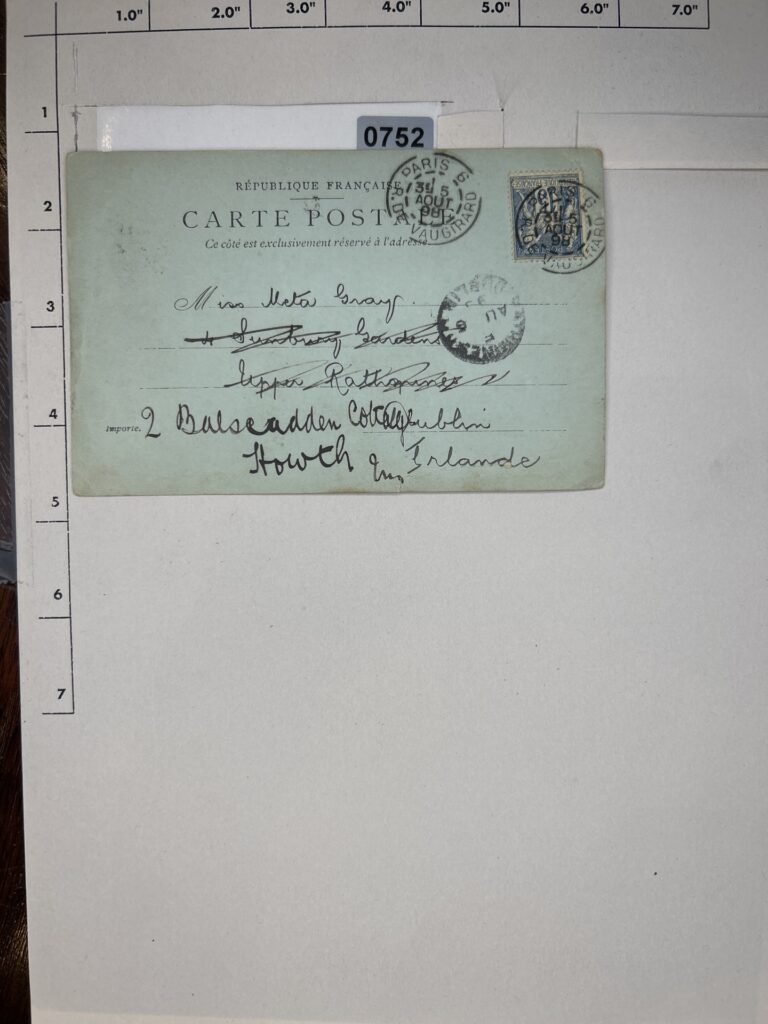 1.0" 2.0" 3.0" 4.0" 5.0" 6.0" 7.0"
1
2
3
4
5
6
7
0752
RÉPUBLIQUE FRANÇAISE
CARTE POSTA
Ce côté est exclusivement réservé à l'adresse
PARIS
3E 5
AOUT
98
R. DE VAUGIRARD
PARIS
3E 5
AOUT
98
VAUGIRARD
DUBLIN
AU
Miss Meta Gray.
4 Sunbury Gardens
Upper Rathmines
2 Balscadden Cottage Dublin
Howth Irlande